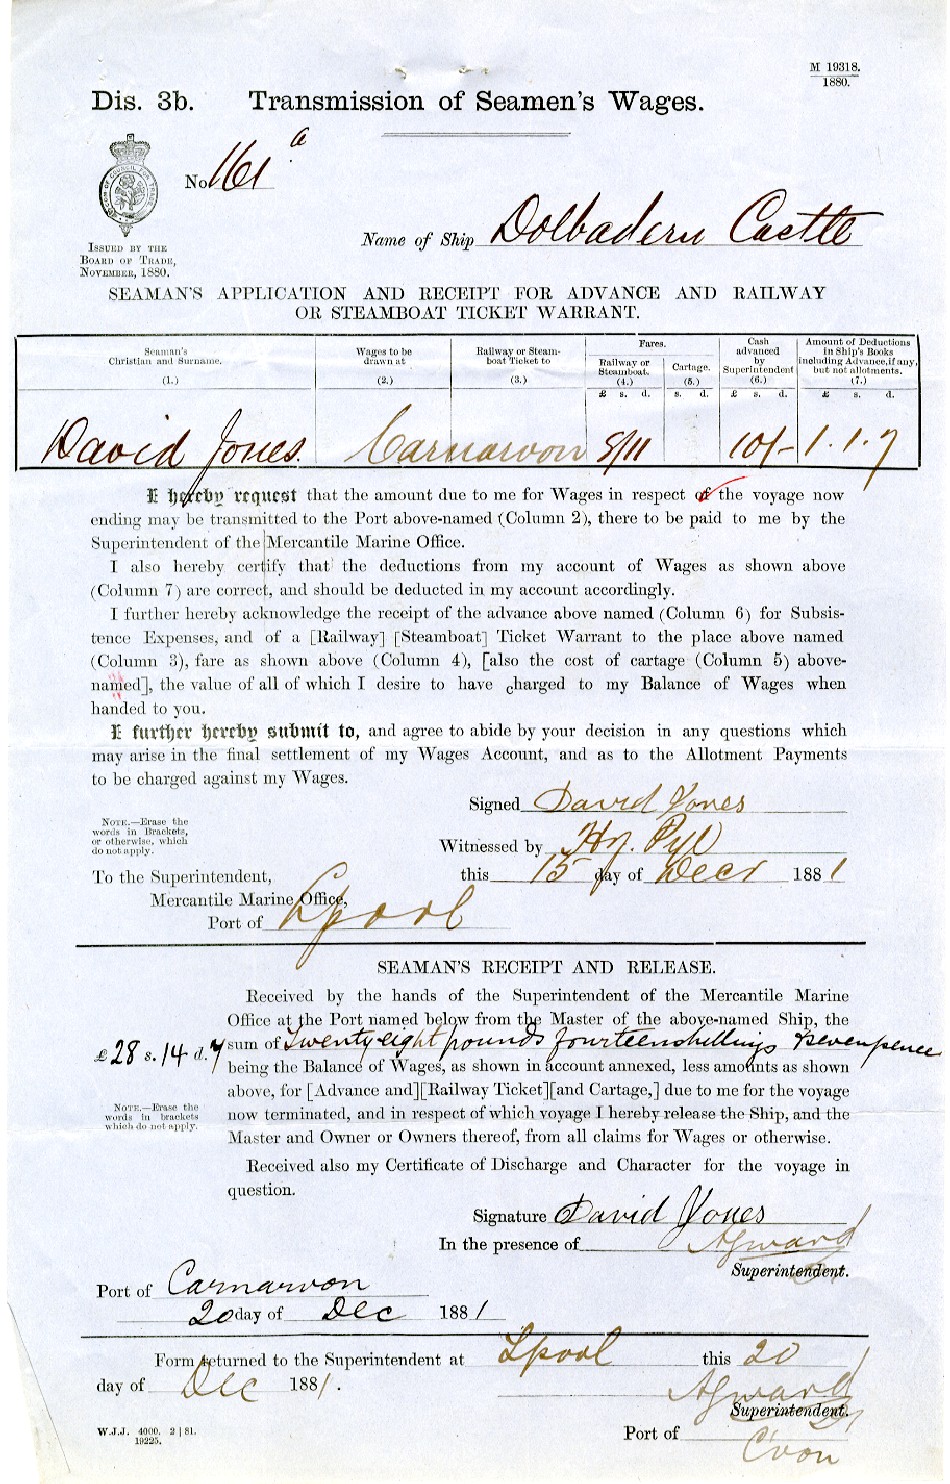 M 19318.
1880.
Dis. 3b. Transmission of Seamen's Wages.
No 161 a
Name of Ship Dolbadern Castle
ISSUED BY THE
BOARD OF TRADE,
NOVEMBER, 1880.
SEAMAN'S APPLICATION AND RECEIPT FOR ADVANCE AND RAILWAY
OR STEAMBOAT TICKET WARRANT.
Seaman's Christian and Surname. (1.)
Wages to be drawn at (2.)
Railway or Steam-boat Ticket to (3.)
Fares.
Railway or Steamboat. (4.)
Cartage. (5.)
Cash advanced by Superintendent (6.)
Amount of Deductions in Ship's Books including Advance, if any, but not allotments. (7.)
£ s. d. s. d. £ s. d. £ s. d.
David Jones. Carnarvon 5/11 10/- 1. 1. 7
I hereby request that the amount due to me for Wages in respect of the voyage now
ending may be transmitted to the Port above-named (Column 2), there to be paid to me by the
Superintendent of the Mercantile Marine Office.
I also hereby certify that the deductions from my account of Wages as shown above
(Column 7) are correct, and should be deducted in my account accordingly.
I further hereby acknowledge the receipt of the advance above named (Column 6) for Subsis-
tence Expenses, and of a [Railway] [Steamboat] Ticket Warrant to the place above named
(Column 3), fare as shown above (Column 4), [also the cost of cartage (Column 5) above-
named], the value of all of which I desire to have charged to my Balance of Wages when
handed to you.
I further hereby submit to, and agree to abide by your decision in any questions which
may arise in the final settlement of my Wages Account, and as to the Allotment Payments
to be charged against my Wages.
Signed David Jones
NOTE.—Erase the
words in Brackets,
or otherwise, which
do not apply.
Witnessed by Hy. Pyl
this 15 day of Decr 1881
To the Superintendent,
Mercantile Marine Office,
Port of Lpool
SEAMAN'S RECEIPT AND RELEASE.
Received by the hands of the Superintendent of the Mercantile Marine
Office at the Port named below from the Master of the above-named Ship, the
£28 s. 14 d. 7 sum of Twenty eight pounds fourteen shillings & sevenpence
being the Balance of Wages, as shown in account annexed, less amounts as shown
above, for [Advance and][Railway Ticket][and Cartage,] due to me for the voyage
now terminated, and in respect of which voyage I hereby release the Ship, and the
Master and Owner or Owners thereof, from all claims for Wages or otherwise.
NOTE.—Erase the
words in brackets
which do not apply.
Received also my Certificate of Discharge and Character for the voyage in
question.
Signature David Jones
In the presence of
Superintendent.
Port of Carnarvon
20 day of Dec 1881
Form returned to the Superintendent at Lpool this 20
day of Dec 1881.
Superintendent.
Port of C'von
W.J.J. 4000. 2 | 81.
19225.